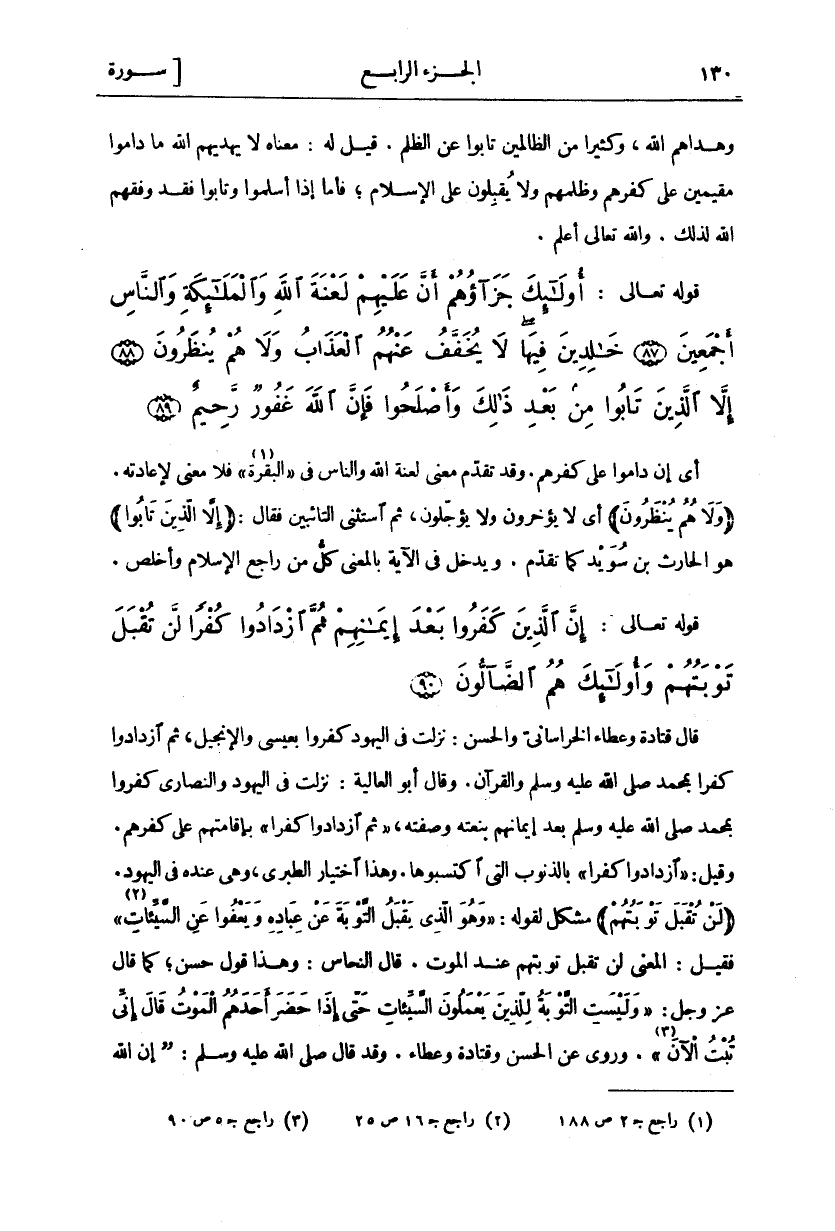 ١٣٠ الجـزء الرابـع [ ســورة
وهـداهم الله ، وكثيرا من الظالمين تابوا عن الظلم . قيـل له : معناه لا يهديهم الله ما داموا
مقيمين على كفرهم وظلمهم ولا يُقبِلون على الإسـلام ؛ فأما إذا أسلموا وتابوا فقـد وفقهم
الله لذلك . والله تعالى أعلم .
قوله تعـالى : أُولَـٰٓئِكَ جَزَآؤُهُمْ أَنَّ عَلَيْهِمْ لَعْنَةَ ٱللَّهِ وَٱلْمَلَـٰٓئِكَةِ وَٱلنَّاسِ
أَجْمَعِينَ ﴿٨٧﴾ خَـٰلِدِينَ فِيهَا ۖ لَا يُخَفَّفُ عَنْهُمُ ٱلْعَذَابُ وَلَا هُمْ يُنظَرُونَ ﴿٨٨﴾
إِلَّا ٱلَّذِينَ تَابُوا مِنۢ بَعْدِ ذَٰلِكَ وَأَصْلَحُوا فَإِنَّ ٱللَّهَ غَفُورٌ رَّحِيمٌ ﴿٨٩﴾
أى إن داموا على كفرهم. وقد تقدّم معنى لعنة الله والناس فى «البقرة» (١) فلا معنى لإعادته.
﴿وَلَا هُمْ يُنْظَرُونَ﴾ أى لا يؤخرون ولا يؤجّلون، ثم ٱستثنى التائبين فقال : ﴿إِلَّا الَّذِينَ تَابُوا﴾
هو الحارث بن سُوَيْد كما تقدّم . ويدخل فى الآية بالمعنى كلُّ من راجع الإسلام وأخلص .
قوله تعـالى : إِنَّ ٱلَّذِينَ كَفَرُوا بَعْدَ إِيمَـٰنِهِمْ ثُمَّ ٱزْدَادُوا كُفْرًا لَّن تُقْبَلَ
تَوْبَتُهُمْ وَأُولَـٰٓئِكَ هُمُ ٱلضَّآلُّونَ ﴿٩٠﴾
قال قتادة وعطاء الخراسانىّ والحسن : نزلت فى اليهود كفروا بعيسى والإنجيل، ثم ٱزدادوا
كفرا بمحمد صلى الله عليه وسلم والقرآن. وقال أبو العالية : نزلت فى اليهود والنصارى كفروا
بمحمد صلى الله عليه وسلم بعد إيمانهم بنعته وصفته، «ثم ٱزدادوا كفرا» بإقامتهم على كفرهم.
وقيل: «ٱزدادوا كفرا» بالذنوب التى ٱكتسبوها. وهذا ٱختيار الطبرى، وهى عنده فى اليهود.
﴿لَنْ تُقْبَلَ تَوْبَتُهُمْ﴾ مشكل لقوله : «وَهُوَ الَّذِى يَقْبَلُ التَّوْبَةَ عَنْ عِبَادِهِ وَيَعْفُوا عَنِ السَّيِّئَاتِ» (٢)
فقيـل : المعنى لن تقبل توبتهم عنـد الموت . قال النحاس : وهـذا قول حسن؛ كما قال
عز وجل: « وَلَيْسَتِ التَّوْبَةُ لِلَّذِينَ يَعْمَلُونَ السَّيِّئَاتِ حَتَّى إِذَا حَضَرَ أَحَدَهُمُ الْمَوْتُ قَالَ إِنِّى
تُبْتُ الْآنَ » (٣) . وروى عن الحسن وقتادة وعطاء . وقد قال صلى الله عليه وسلم : " إن الله
(١) راجع جـ ٢ ص ١٨٨ (٢) راجع جـ ١٦ ص ٢٥ (٣) راجع جـ ٥ ص ٩٠